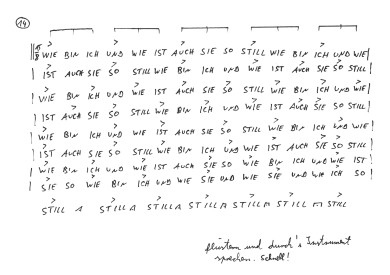 14
WIE BIN ICH UND WIE IST AUCH SIE SO STILL WIE BIN ICH UND WIE
IST AUCH SIE SO STILL WIE BIN ICH UND WIE IST AUCH SIE SO STILL
WIE BIN ICH UND WIE IST AUCH SIE SO STILL WIE BIN ICH UND WIE
IST AUCH SIE SO STILL WIE BIN ICH UND WIE IST AUCH SIE SO STILL
WIE BIN ICH UND WIE IST AUCH SIE SO STILL WIE BIN ICH UND WIE
IST AUCH SIE SO STILL WIE BIN ICH UND WIE IST AUCH SIE SO STILL
WIE BIN ICH UND WIE IST AUCH SIE SO WIE BIN ICH UND WIE IST
SIE SO WIE BIN ICH UND WIE SIE UND WIE SIE UND WIE ICH SO
STILL STILL STILL STILL STILL STILL STILL
flüstern und durch's Instrument
sprechen. Schnell!